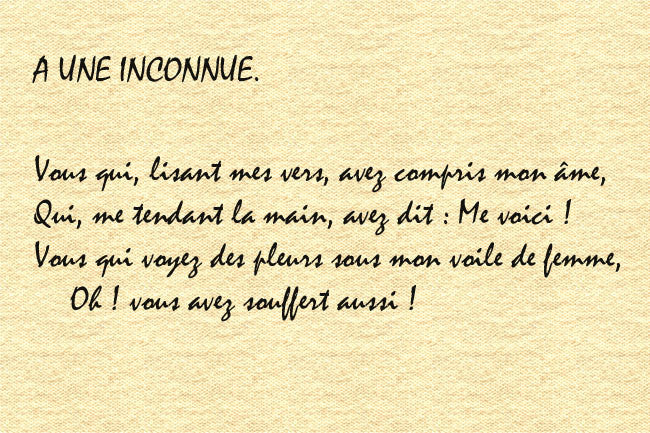 A UNE INCONNUE.
Vous qui, lisant mes vers, avez compris mon âme,
Qui, me tendant la main, avez dit : Me voici !
Vous qui voyez des pleurs sous mon voile de femme,
Oh ! vous avez souffert aussi !